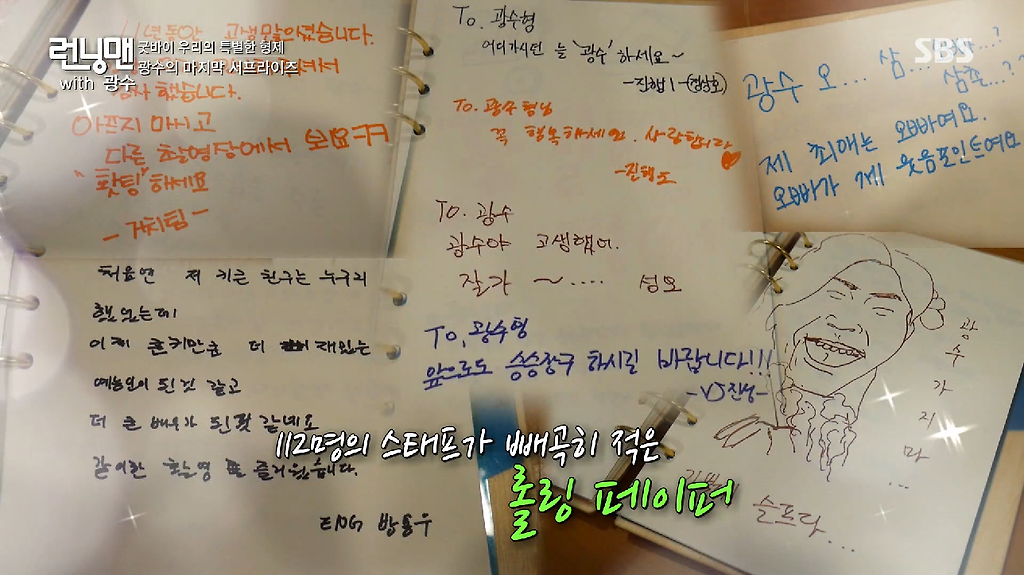 런닝맨
with 광수
굿바이 우리의 특별한 형제
광수의 마지막 서프라이즈
SBS
11년동안 고생많으셨습니다.
감사했습니다.
아프지 마시고
다른 촬영장에서 보요ㅋㅋ
"홧팅"하세요
- 거치팀 -
To. 광수형
어디가시던 늘 '광수' 하세요~
To. 광수형님
꼭 행복하세요. 사랑합니다
To. 광수
광수야 고생했어.
잘가 ~ .... 성오
To, 광수형
앞으로도 승승장구 하시길 바랍니다!!!
-VJ 진성-
광수 오... 삼...
삼촌...??
제 최애는 오빠여요.
오빠가 제 웃음포인트여요
처음엔 저 키큰 친구는 누구지
했었는데
이제 큰키만큼 더 재밌는
예능인이 된것 같고
더 큰 배우가 된것 같네요
같이한 촬영 즐거웠습니다.
ENG 방용우
광수가지마...
슬프다...
112명의 스태프가 빼곡히 적은
롤링 페이퍼